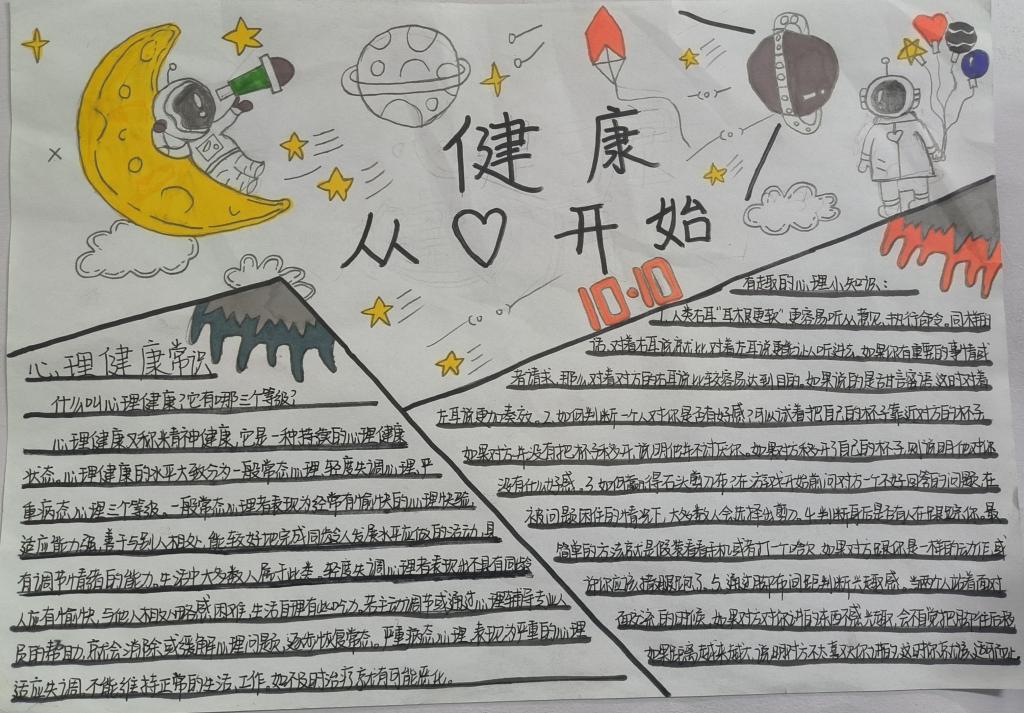 健康
从开始
10·10
心理健康常识
什么叫心理健康?它有哪三个等级?
心理健康又称精神健康,它是一种持续的心理健康
状态。心理健康的水平大致分为一般常态心理,轻度失调心理,严
重病态心理三个等级。一般常态心理者表现为经常有愉快的心理体验,
适应能力强,善于与别人相处,能较好地完成同龄人发展水平应做的活动,具
有调节情绪的能力。生活中大多数人属于此类。轻度失调心理者表现出不具有同龄
人应有愉快,与他人相处略感困难,生活自理有些吃力。若主动调节或通过心理辅导专业人
员的帮助,就会消除或缓解心理问题,逐步恢复常态。严重病态心理,表现为严重的心理
适应失调,不能维持正常的生活、工作。如不及时治疗就有可能恶化。
有趣的心理小知识:
1.人类右耳"耳根更软"更容易听从意见,执行命令。同样的
话,对着右耳说就比对着左耳说更能让人听进去,如果你有重要的事情或
者请求,那么对着对方的右耳说比较容易达到目的。如果说的是甜言蜜语,这时对着
左耳说更加奏效。2.如何判断一个人对你是否有好感?可以试着把自己的杯子靠近对方的杯子。
如果对方并没有把杯子移开,说明他并不讨厌你。如果对方移开了自己的杯子,则说明他对你
没有什么好感。3.如何赢得石头剪刀布?在游戏开始前问对方一个不好回答的问题,在
被问题困住的情况下,大多数人会选择出剪刀。4.判断背后是否有人在跟踪你,最
简单的方法就是假装看看手机或者打一个哈欠,如果对方跟你是一样的动作,或
许你应该撒腿跑了。5.通过脚部间距判断兴趣感,当两个人站着面对
面交流的时候,如果对方对你讲的东西感兴趣,会不自觉把脚伸向后移
如果距离越来越大,说明对方不太喜欢你讲的,这时你应该适可而止